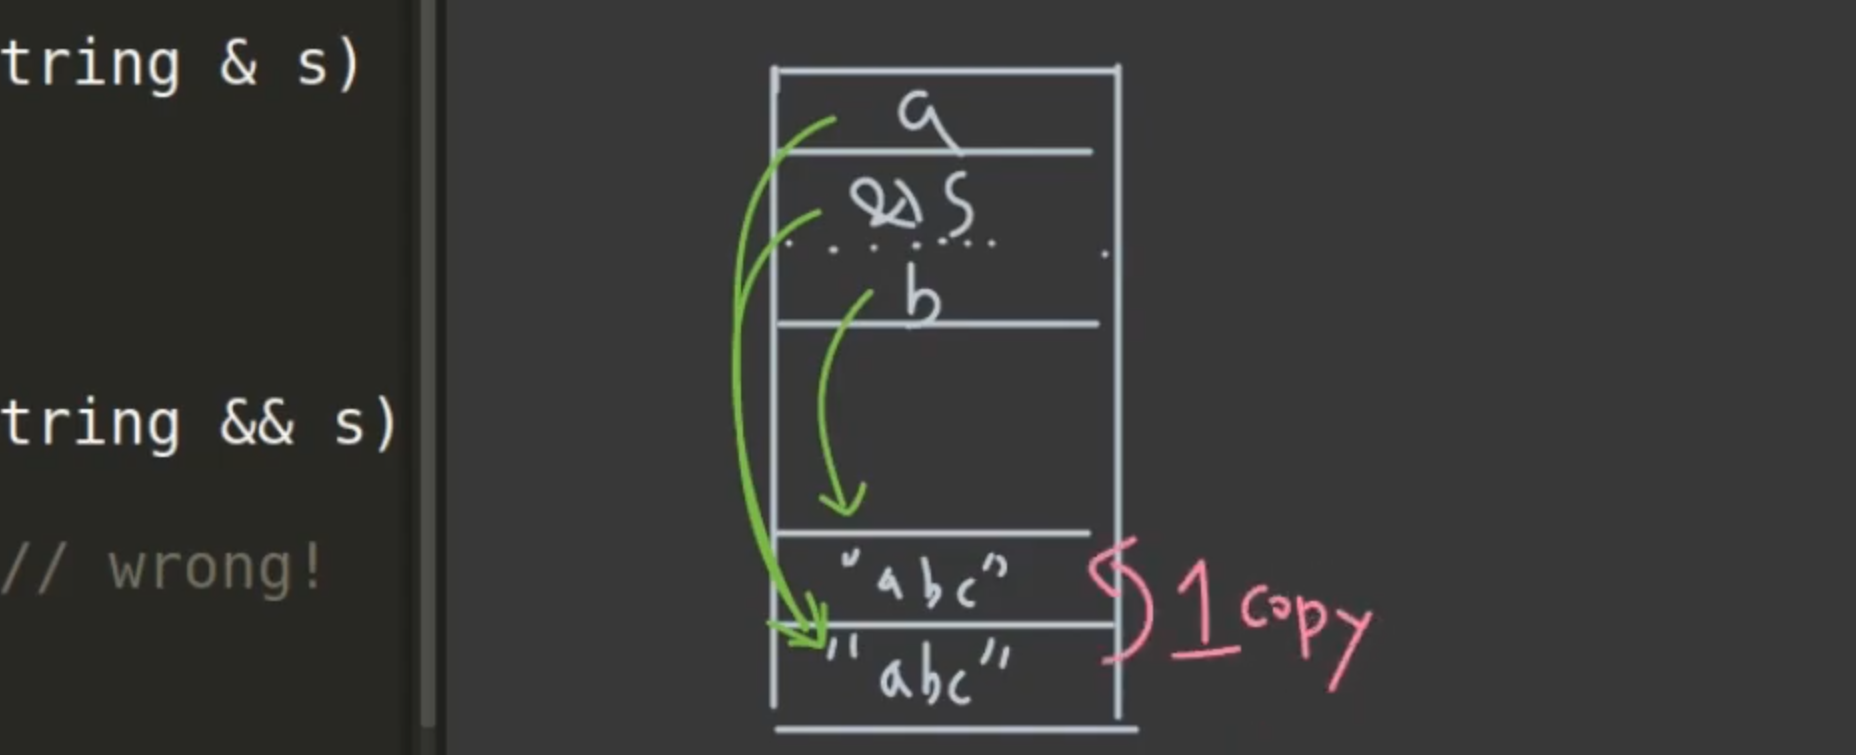 tring & s)
tring && s)
// wrong!
a
& s
b
"abc"
"abc"
1 copy